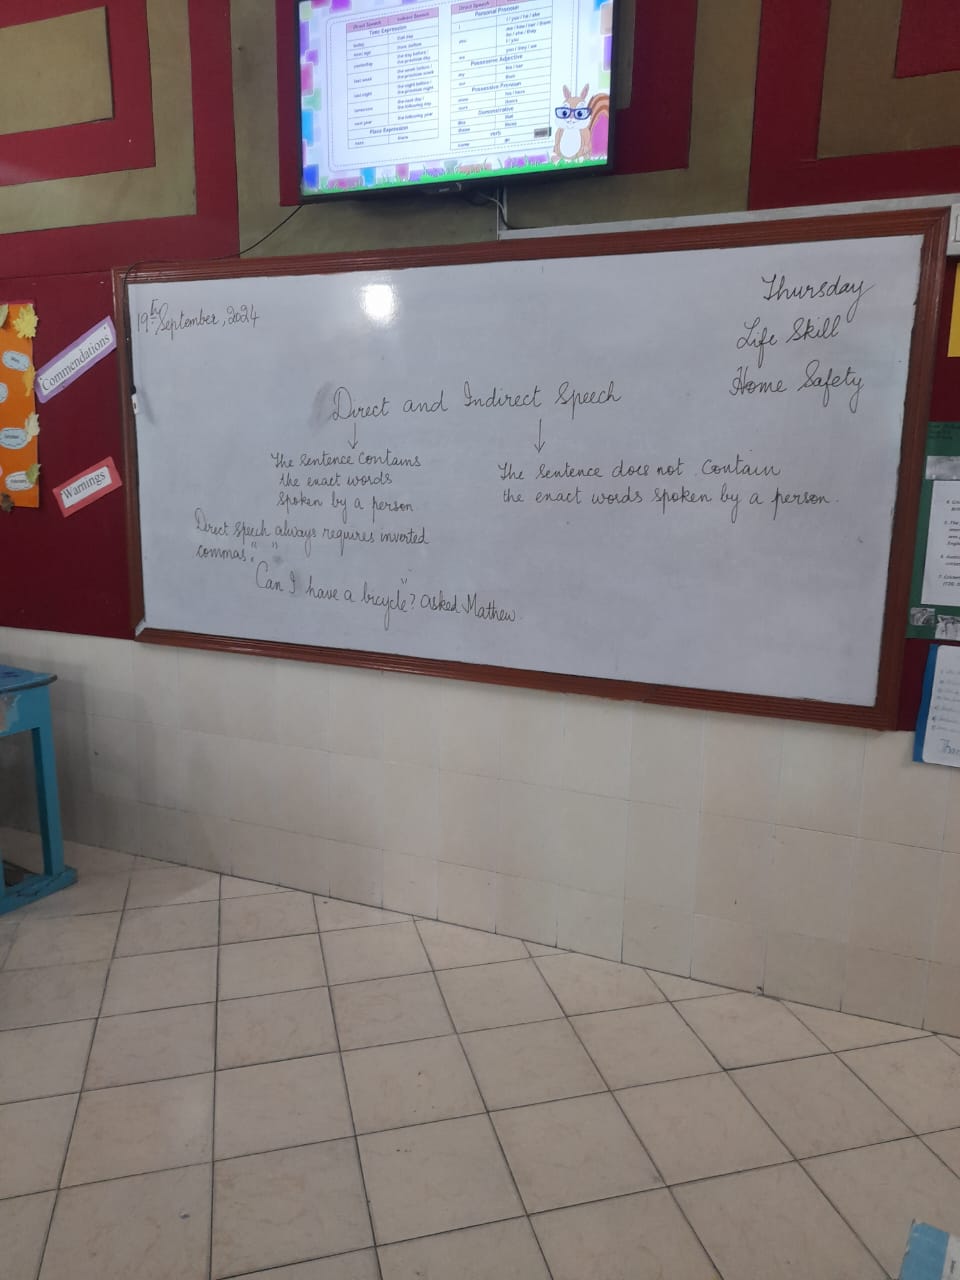 Direct Speech Indirect Speech
Time Expression
today that day
yesterday the day before /
the previous day
last week the week before /
the previous week
last night the night before /
the previous night
tomorrow the next day /
the following day
next year the following year
Place Expression
here there
Direct Speech
Personal Pronoun
I I / you / he / she
you me / him / her / them
he / she / they
I / you
we you / they / we
Possessive Adjective
my his / her
our their
Possessive Pronoun
mine his / hers
ours theirs
Demonstrative
this that
these those
verb
come go
19th September, 2024
Thursday
Life Skill
Home Safety
Direct and Indirect Speech
The sentence contains
the exact words
spoken by a person
The sentence does not contain
the exact words spoken by a person.
Direct speech always requires inverted
commas. " "
"Can I have a bicycle"? asked Mathew.
Commendations
Warnings